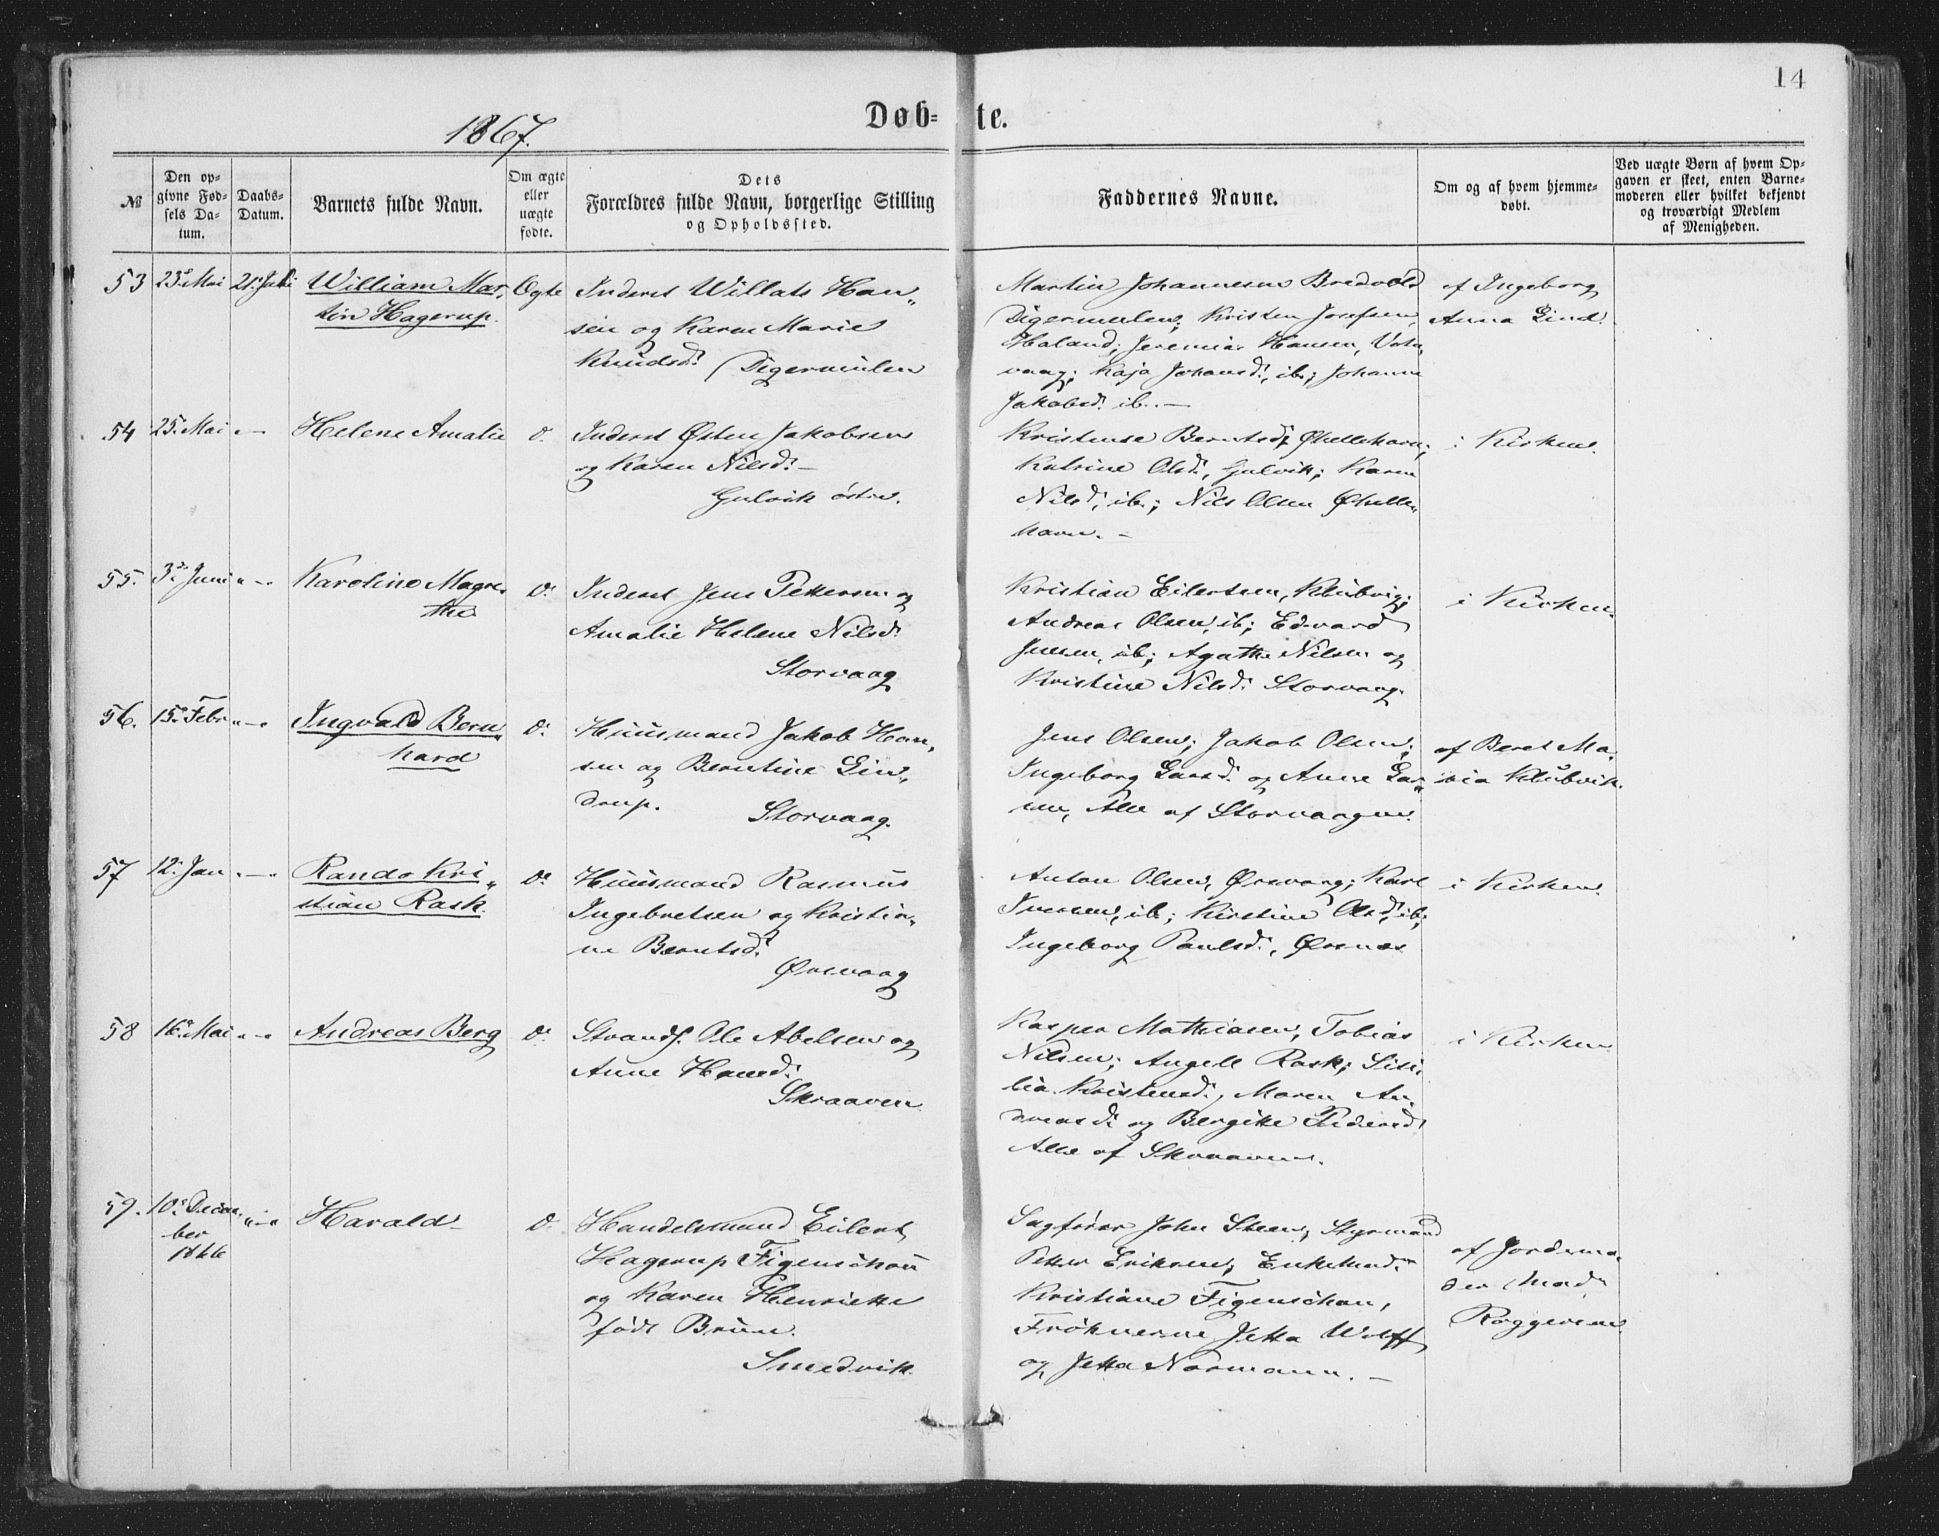 14
1867.
Døb-te.
№
Den opgivne Fødsels Datum.
Daabs-Datum.
Barnets fulde Navn.
Om ægte eller uægte fødte.
Dets Forældres fulde Navn, borgerlige Stilling og Opholdssted.
Faddernes Navne.
Om og af hvem hjemmedøbt.
Ved uægte Børn af hvem Opgaven er skeet, enten Barnemoderen eller hvilket bekjendt og troværdigt Medlem af Menigheden.
53 23de Mai 21de Juli William Mar-
tin Hagerup.
Ægte
Inderst Willats Han-
sen og Karen Marie
Knudsd. Digermulen
Martin Johannesen Bredvold
Digermulen; Kristen Josefsen,
Haland; Jeremias Hansen,
Kaja Johansd., ib.; Johanna
Jakobsd. ib. —
af Ingeborg
Anna Lind.
54 25. Mai — Helene Amalie
d.
Inderst Østen Jakobsen
og Karen Nilsd. —
Gulvik østre.
Kristense Berntsd.
Katrine Olsd., Gulvik; Karen
Nilsd., ib.; Nils Olsen Øhelle-
havn. —
i Kirken.
55. 3de Juni — Karoline Magre-
the
d.
Inderst Jens Pettersen og
Amalie Helene Nilsd.
Storvaag
Kristian Eilertsen, Klubvig;
Andreas Olsen, ib; Edvard
Jensen, ib; Agathe Nilsen og
Kristine Nilsd. Storvaag.
i Kirken.
56. 15. Febr — Ingvald Bern-
hard
d.
Huusmand Jakob Han-
sen og Berntine Lin-
drup.
Storvaag.
Jens Olsen; Jakob Olsen;
Ingeborg Larsd. og Anne Lar-
sen, Alle af Storvaagen.
af Beret Ma-
ria Klubvik.
57 12. Jan — Rando Kri-
stian Rask.
do
Huusmand Rasmus
Ingebretsen og Kristin-
ne Berntsd.
Ørsvaag
Anton Olsen, Ørsvaag; Karl
Iversen, ib; Kirstine Olsd., ib;
Ingeborg Paulsd., Ørsnes
i Kirken.
58 16. Mai — Andreas Berg
do
Strands. Ole Abelsen og
Anne Hansd.
Skraaven
Kasper Mathiasen, Tobias
Nilsen; Angell Rask; Sisi-
lia Kristensd., Maren An-
dreasd. og Bergitte Pedersd.
Alle af Skraaven.
i Kirken
59. 10. Decem-
ber
1866
— Harald
d.
Handelsmand Eilert
Hagerup Figenschou
og Karen Henriette
født Bruun.
Smedvik
Sagfører John Steen; Styrmand
Petter Eriksen; Enkemad.
Kristiane Figenschou,
Frøknerne Jetta Wolff
og Jetta Normann. —
af Jordemo-
der Mad.
Roggersen